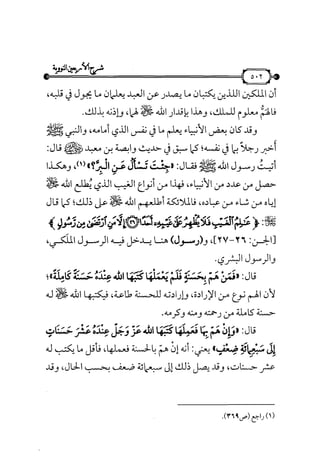 شرح الأربعين النووية
٥٠٢
أن الملكين اللذين يكتبان ما يصدر عن العبد يعلمان ما يجول في قلبه،
فالهمُّ معلوم للملك، وهذا بإقدار الله ﷻ لهما، وإذنه بذلك.
وقد كان بعض الأنبياء يعلم ما في نفس الذي أمامه، والنبي ﷺ
أخبر رجلاً بما في نفسه؛ كما سبق في حديث وابصة بن معبد قال:
أتيتُ رسول الله ﷺ فقال: «جِئْتَ تَسْأَلُ عَنِ الْبِرِّ؟» (١)، وهكذا
حصل من عدد من الأنبياء، فهذا من أنواع الغيب الذي يُطلع الله ﷻ
إياه من شاء من عباده، فالملائكة أطلعهم الله ﷻ على ذلك؛ كما قال
ﷻ: ﴿عَٰلِمُ ٱلْغَيْبِ فَلَا يُظْهِرُ عَلَىٰ غَيْبِهِۦٓ أَحَدًا ٢٦ إِلَّا مَنِ ٱرْتَضَىٰ مِن رَّسُولٍ﴾
[الجن: ٢٦-٢٧]، و(رسول) هنا يدخل فيه الرسول الملكي،
والرسول البشري.
قال: «فَمَنْ هَمَّ بِحَسَنَةٍ فَلَمْ يَعْمَلْهَا كَتَبَهَا الله عِنْدَهُ حَسَنَةً كَامِلَةً»؛
لأن الهم نوع من الإرادة، وإرادته للحسنة طاعة، فيكتبها الله ﷻ له
حسنة كاملة من رحمته ومنه وكرمه.
قال: «وَإِنْ هَمَّ بِهَا فَعَمِلَهَا كَتَبَهَا الله عَزَّ وَجَلَّ عِنْدَهُ عَشْرَ حَسَنَاتٍ
إِلَى سَبْعِمِائَةِ ضِعْفٍ» يعني: أنه إنْ همّ بالحسنة فعملها، فأقل ما يكتب له
عشر حسنات، وقد يصل ذلك إلى سبعمائة ضعف بحسب الحال، وقد
(١) راجع (ص٣٦٩).